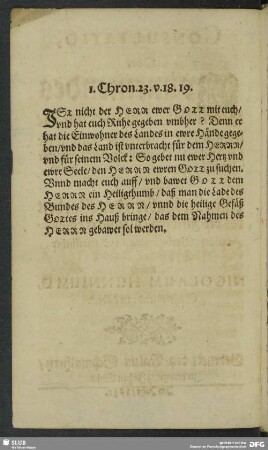 1. Chron. 23. v. 18. 19.
ISt nicht der HERR ewer GOTT mit euch/
vnd hat euch Ruhe gegeben vmbher? Denn er
hat die Einwohner des Landes in ewre Hände gege-
ben/vnd das Land ist vnterbracht für dem HERRN/
vnd für seinem Volck: So gebet nu ewer Hertz vnd
ewre Seele/den HERRN ewren GOTT zu suchen.
Vnnd macht euch auff/ vnd bawet GOTT dem
HERRN ein Heiligthumb/ daß man die Lade des
Bundes des HERRN/ vnnd die heilige Gefäß
Gottes ins Hauß bringe/ das dem Nahmen des
HERRN gebawet sol werden.
SLUB
DFG